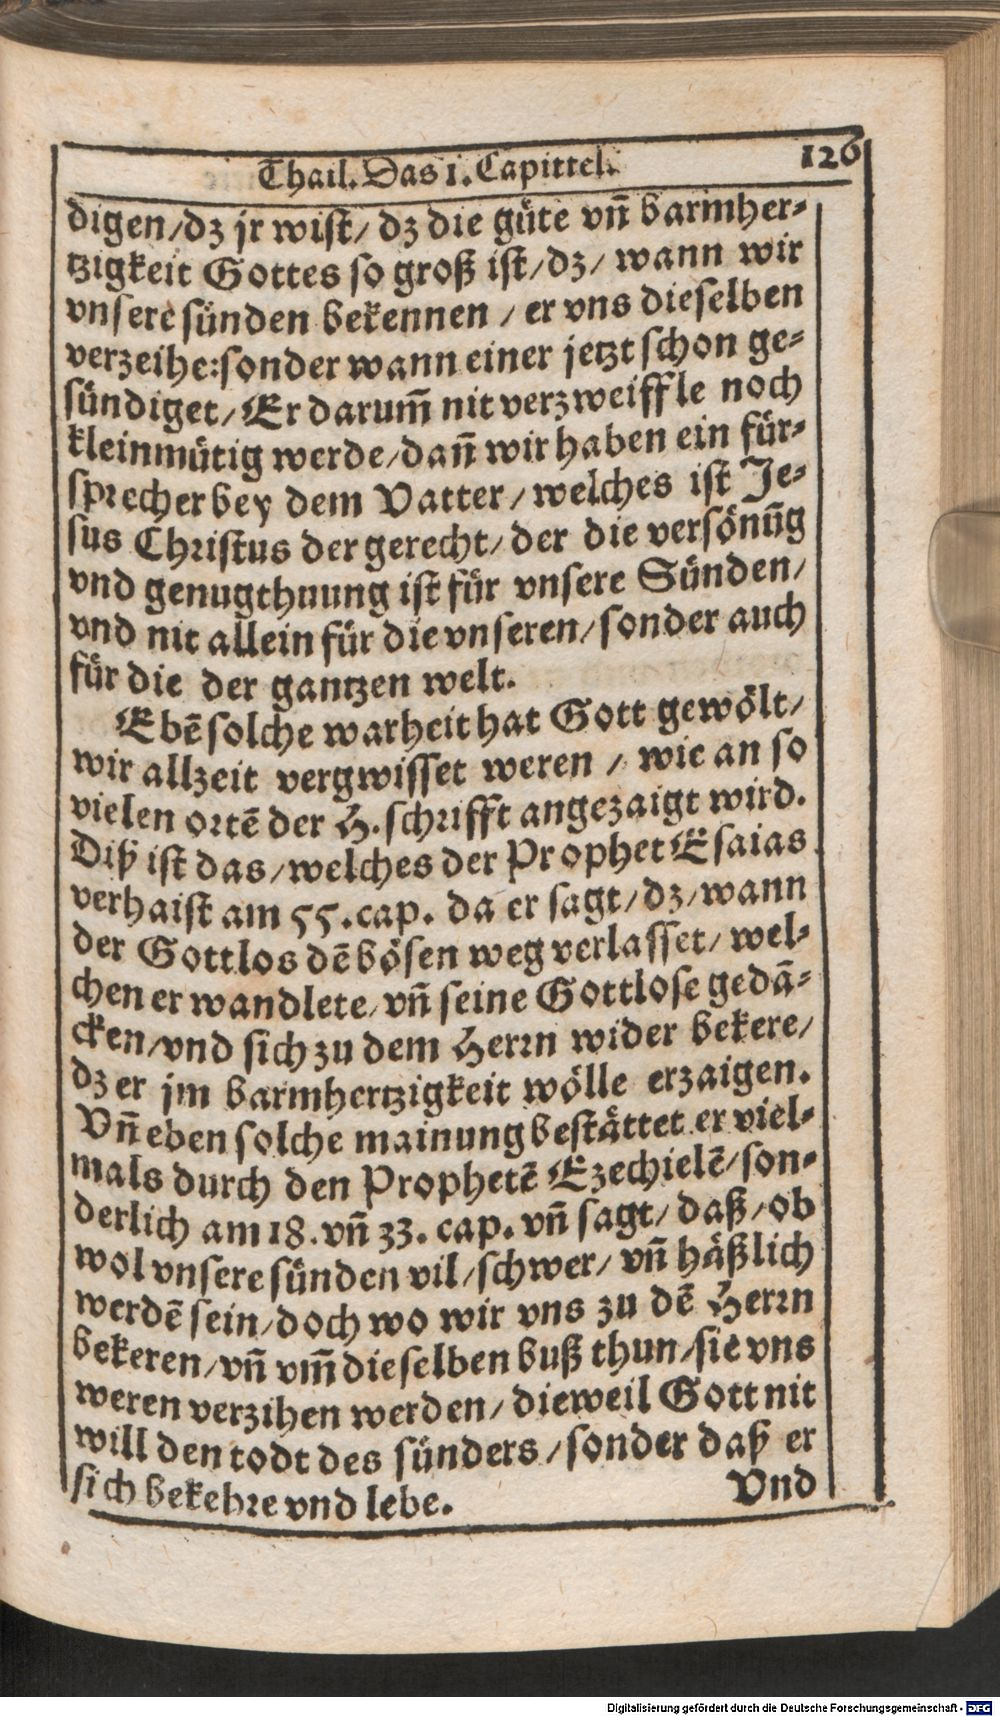 Thail. Das 1. Capittel. 126
digen/dz jr wist/ dz die güte vn̄ barmher-
tzigkeit Gottes so groß ist/dz/ wann wir
vnsere sünden bekennen / er vns dieselben
verzeihe:sonder wann einer jetzt schon ge-
sündiget/ Er darum̄ nit verzweiffle noch
kleinmütig werde/dan̄ wir haben ein für-
sprecher bey dem Vatter/ welches ist Je-
sus Christus der gerecht/ der die versönūg
vnd genugthuung ist für vnsere Sünden/
vnd nit allein für die vnseren/ sonder auch
für die der gantzen welt.
Ebē solche warheit hat Gott gewölt/
wir allzeit vergwisset weren / wie an so
vielen ortē der H. schrifft angezaigt wird.
Diß ist das/welches der Prophet Esaias
verhaist am 55.cap. da er sagt/dz/wann
der Gottlos dē bösen weg verlasset/ wel-
chen er wandlete/vn̄ seine Gottlose gedā-
cken/vnd sich zu dem Herrn wider bekere/
dz er jm barmhertzigkeit wölle erzaigen.
Vn̄ eben solche mainung bestättet er viel-
mals durch den Prophetē Ezechielē/son-
derlich am 18. vn̄ 33. cap. vn̄ sagt/ daß/ob
wol vnsere sünden vil/schwer/ vn̄ häßlich
werdē sein/doch wo wir vns zu dē Herrn
bekeren/vn̄ vm̄ dieselben buß thun/sie vns
weren verzihen werden/ dieweil Gott nit
will den todt des sünders/sonder daß er
sich bekehre vnd lebe.
Vnd
Digitalisierung gefördert durch die Deutsche Forschungsgemeinschaft - DFG